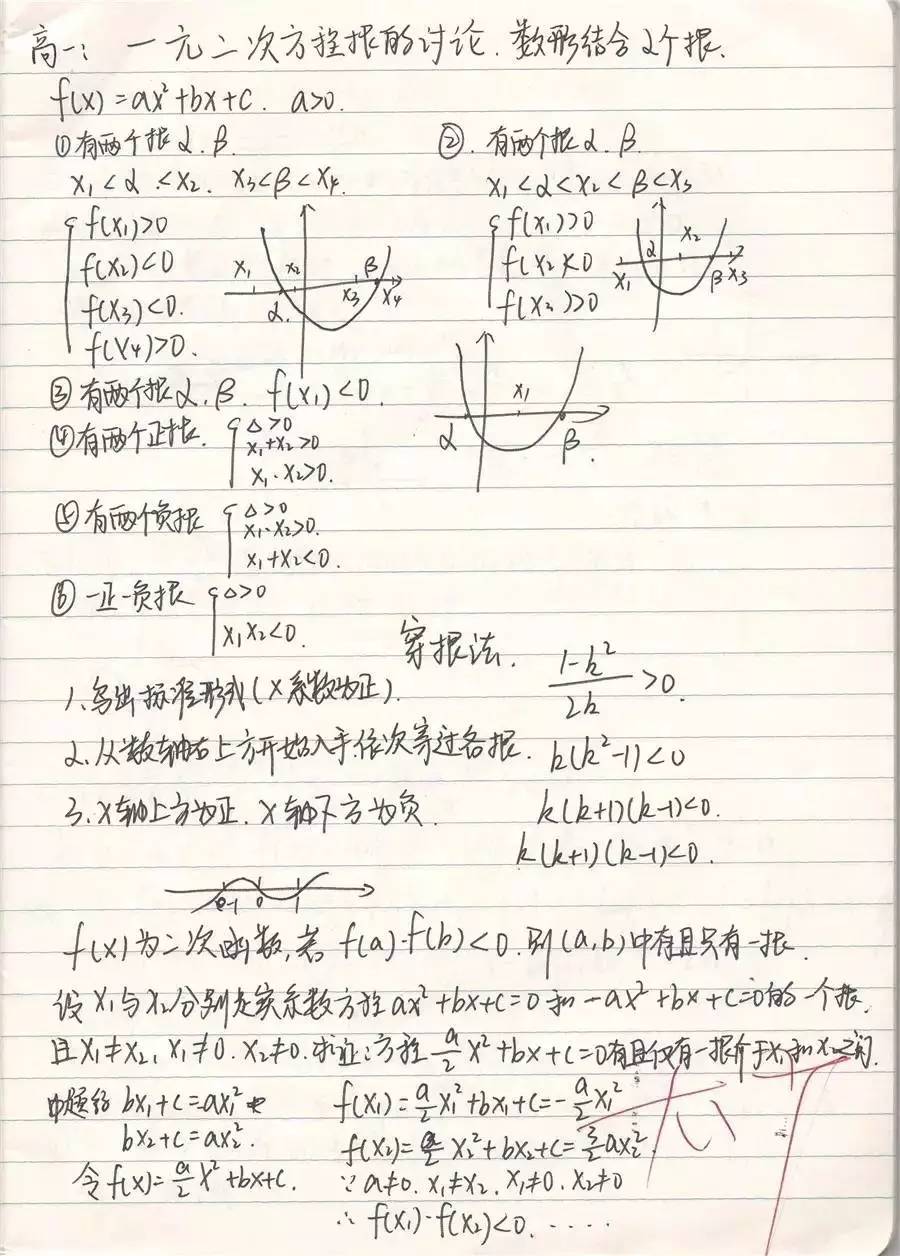 高一: 一元二次方程根的讨论. 数形结合 2个根.
f(x)=ax²+bx+c. a>0.
①有两个根α.β.
x₁<α<x₂. x₃<β<x₄.
f(x₁)>0
f(x₂)<0
f(x₃)<0.
f(x₄)>0.
x₁ x₂ α x₃ β x₄
②. 有两个根α.β.
x₁<α<x₂<β<x₃
f(x₁)>0
f(x₂)<0
f(x₂)>0
x₁ α x₂ β x₃
③有两个根α.β. f(x₁)<0.
α x₁ β
④有两个正根.
△>0
x₁+x₂>0
x₁·x₂>0.
⑤有两个负根
△>0
x₁·x₂>0.
x₁+x₂<0.
⑥一正一负根
△>0
x₁x₂<0.
穿根法.
1.写出标准形式(X系数为正).
2.从数轴右上方开始入手依次穿过各根.
3.X轴上方为正. X轴下方为负.
(1-k²)/2k>0.
k(k²-1)<0
k(k+1)(k-1)<0.
k(k+1)(k-1)<0.
-1 0 1
f(x)为二次函数,若f(a)·f(b)<0.则(a,b)中有且只有一根.
设x₁与x₂分别是实系数方程ax²+bx+c=0和-ax²+bx+c=0的一个根.
且x₁≠x₂, x₁≠0. x₂≠0. 求证:方程a/2 x²+bx+c=0有且仅有一根介于x₁和x₂之间.
bx₁+c=ax₁²
bx₂+c=ax₂².
令f(x)=a/2 x²+bx+c.
f(x₁)=a/2 x₁²+bx₁+c=-a/2 x₁²
f(x₂)=a/2 x₂²+bx₂+c=3/2 ax₂²
∵a≠0. x₁≠x₂. x₁≠0. x₂≠0
∴f(x₁)·f(x₂)<0. ·····